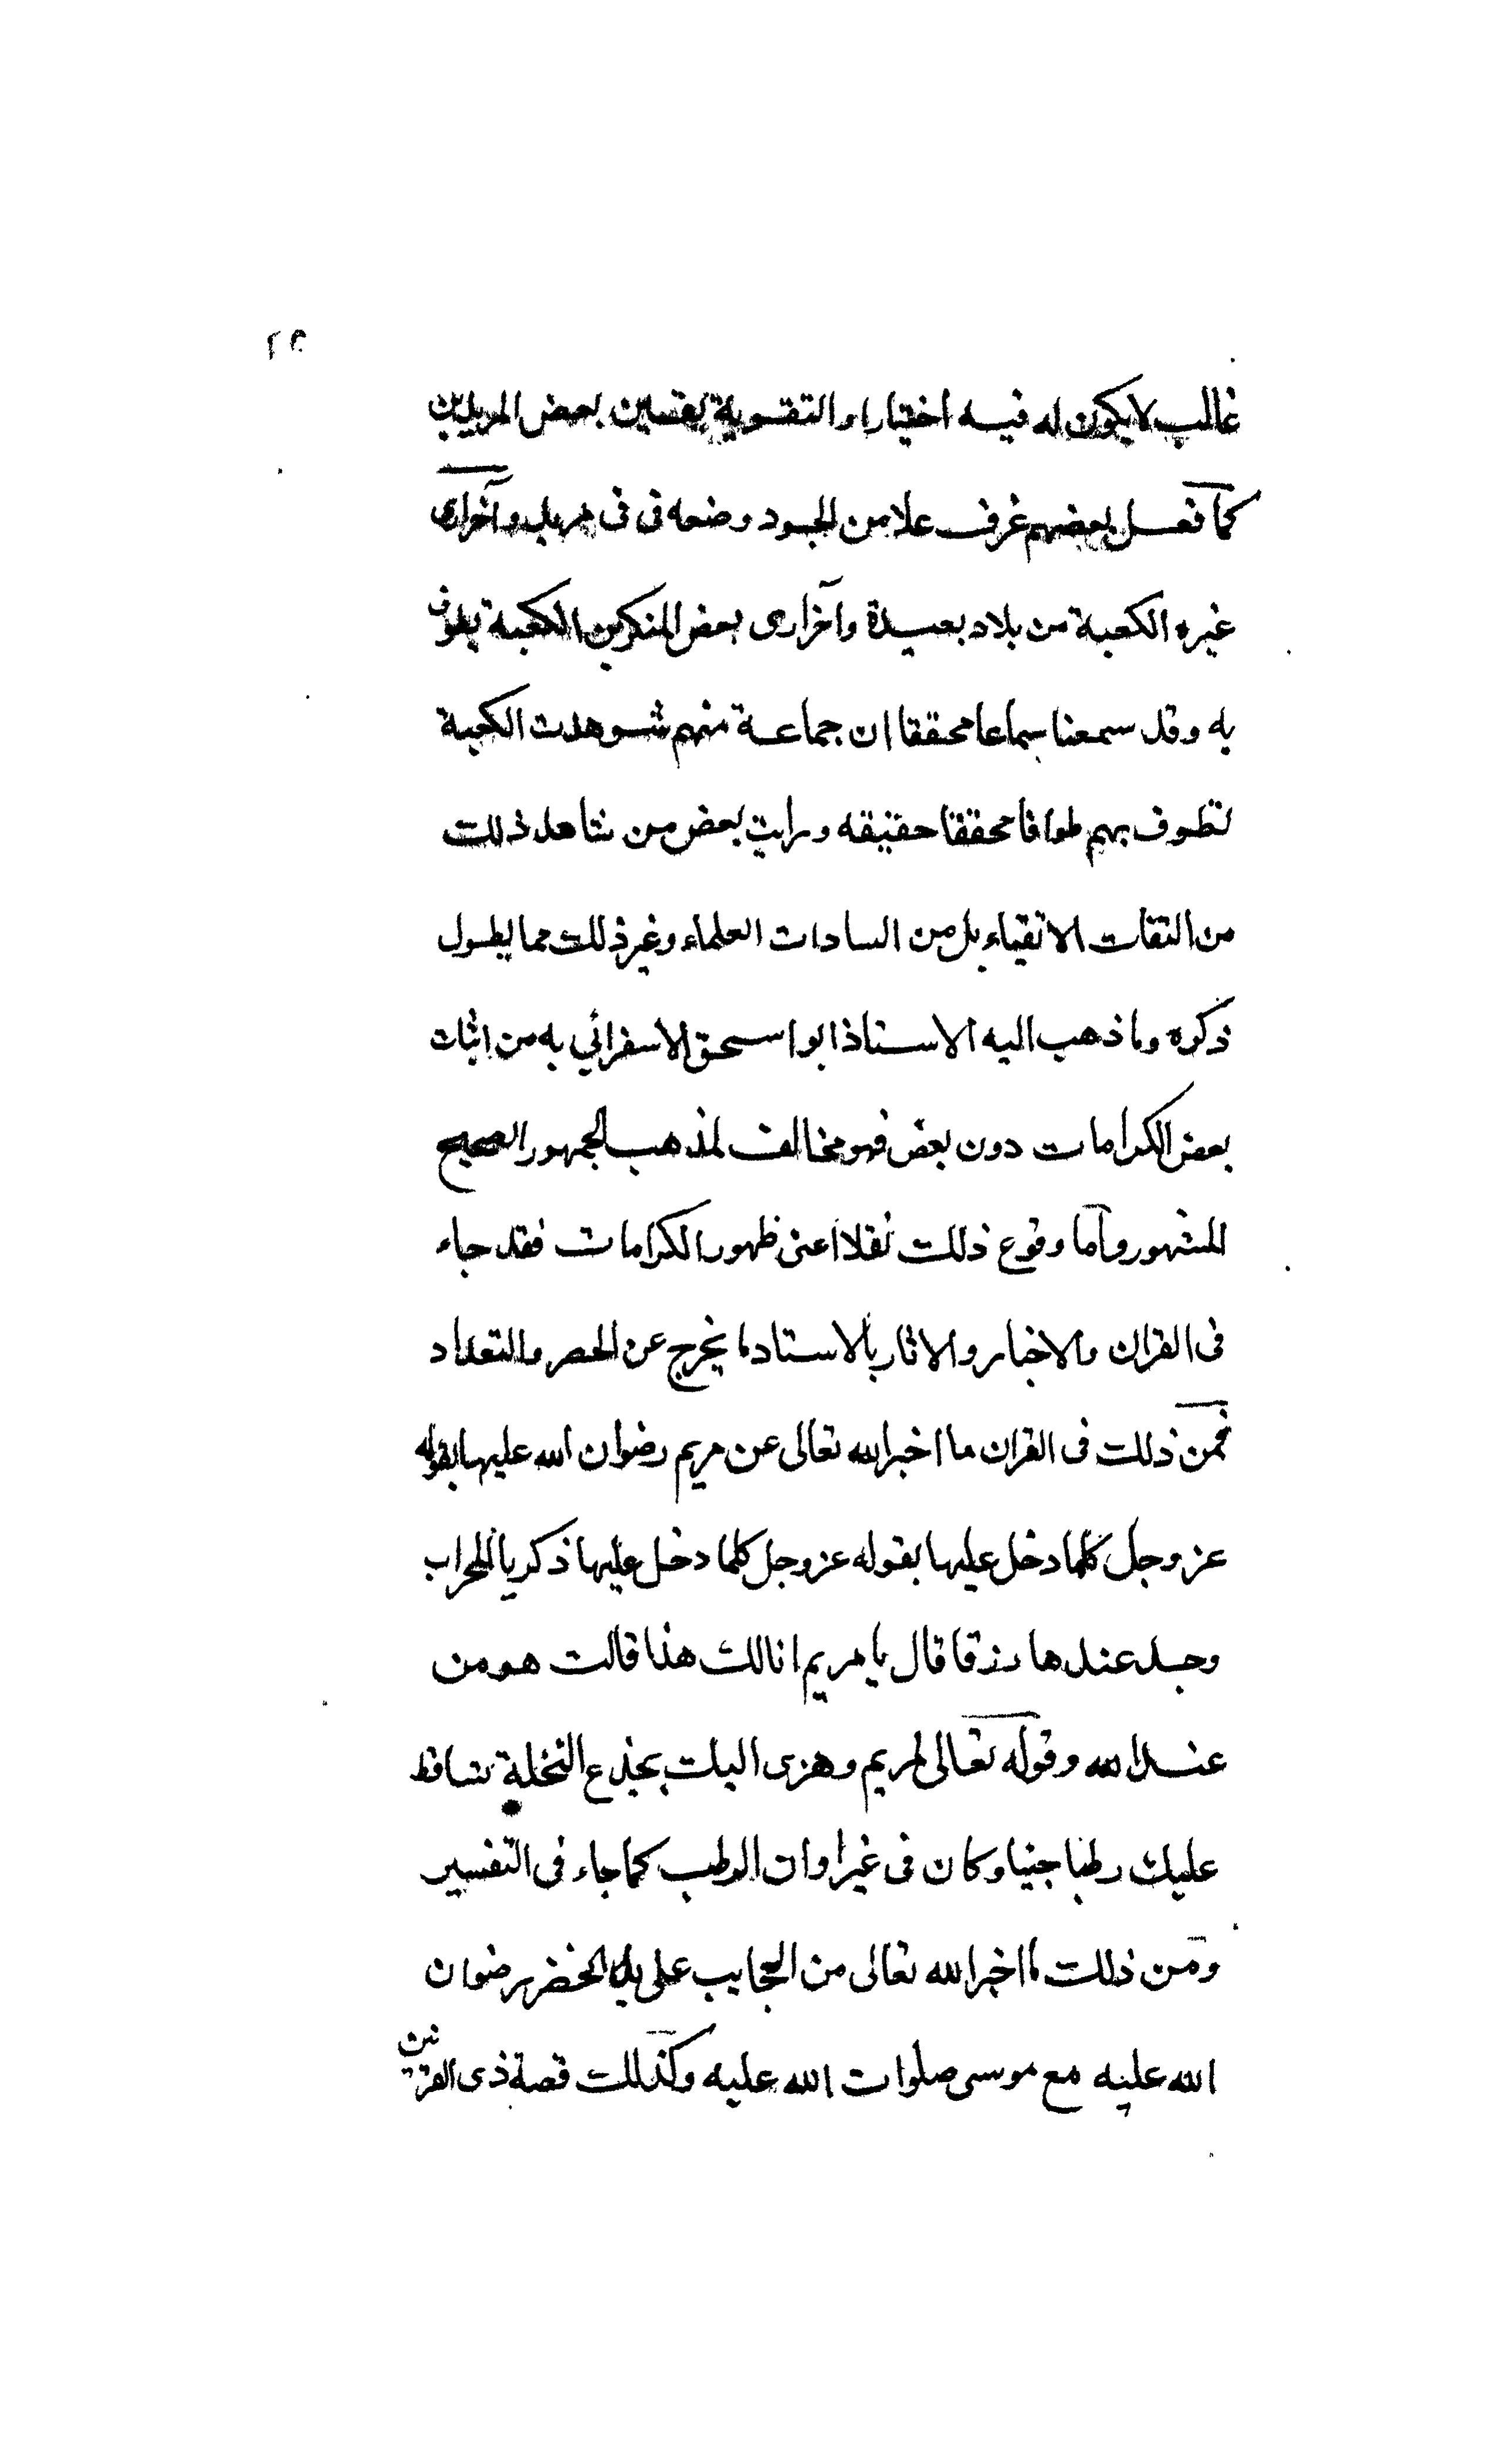 ٢٥
غالب لا يكون له فيه اختيار او التقوية يقين بعض المريدين
كما فعل بعضهم غرف عسلا من الجود وضعه فى فى مريد وآخر ارى
غيره الكعبة من بلاد بعيدة وآخر ارى بعض المنكرين الكعبة يطوف
به وقد سمعنا سماعا محققا ان جماعة منهم شوهدت الكعبة
تطوف بهم طوافا محققا حقيقه ورايت بعض من شاهد ذلك
من الثقات الاتقياء بل من السادات العلماء وغير ذلك مما يطول
ذكره وما ذهب اليه الاستاذ ابو اسحق الاسفرائي به من اثبات
بعض الكرامات دون بعض فهو مخالف لمذهب الجمهور الصحيح
المشهور وآما وقوع ذلك نقلا اعنى ظهور الكرامات فقد جاء
فى القران والاخبار والاثار بالاستاد ما يخرج عن الحصر والتعداد
فمن ذلك فى القران ما اخبر الله تعالى عن مريم رضوان الله عليها بقوله
عز وجل كلما دخل عليها بقوله عز وجل كلما دخل عليها ذكريا المحراب
وجد عندها رزقا قال يا مريم انا لك هذا قالت هو من
عند الله وقوله تعالى لمريم وهزى اليك بجذع النخلة تساقط
عليك رطبا جنيا وكان فى غير اوان الرطب كما جاء فى التفسير
ومن ذلك ما اخبر الله تعالى من العجايب على يد الخضر رضوان
الله عليه مع موسى صلوات الله عليه وكذلك قصة ذى القرنين